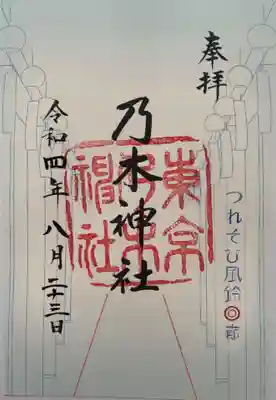 奉拝
つれそひ風鈴回廊
乃木神社
東京
乃木
神社
令和四年八月二十三日